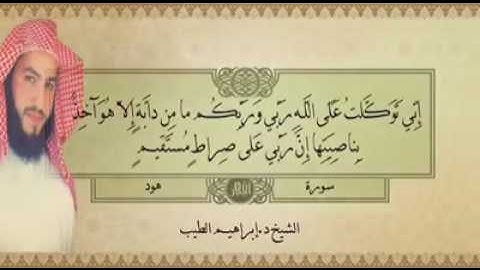 إِنِّي تَوَكَّلْتُ عَلَى اللَّهِ رَبِّي وَرَبِّكُم مَا مِن دَابَّةٍ إِلاَّ هُوَ آخِذٌ
بِنَاصِيَتِهَا إِنَّ رَبِّي عَلَى صِرَاطٍ مُسْتَقِيمٍ
سورة هود
الشيخ د.إبراهيم الطيب